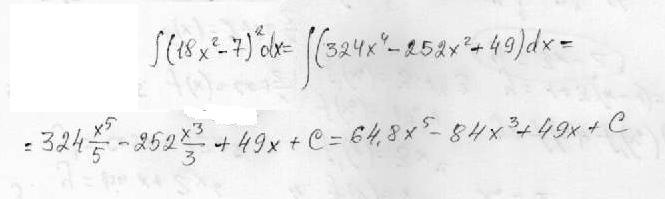 ∫(18x²-7)²dx= ∫(324x⁴-252x²+49)dx=
=324 x⁵/5 - 252 x³/3 + 49x + C = 64,8x⁵ - 84x³ + 49x + C